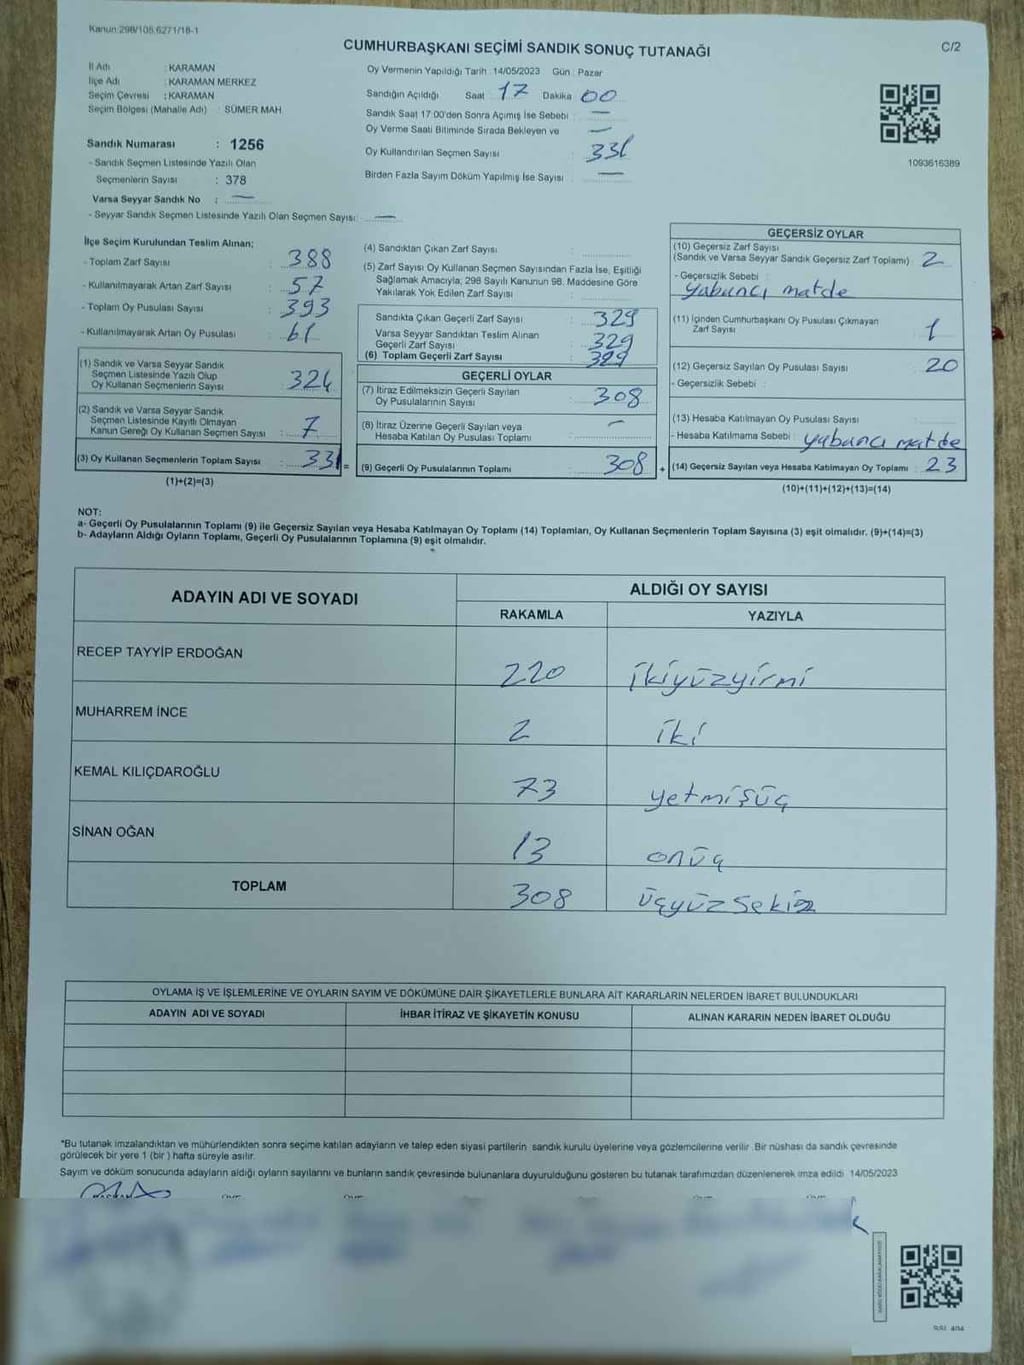 Kanun:298/105,6271/18-1
C/2
CUMHURBAŞKANI SEÇİMİ SANDIK SONUÇ TUTANAĞI
İl Adı : KARAMAN
İlçe Adı : KARAMAN MERKEZ
Seçim Çevresi : KARAMAN
Seçim Bölgesi (Mahalle Adı) : SÜMER MAH.
Sandık Numarası : 1256
- Sandık Seçmen Listesinde Yazılı Olan
Seçmenlerin Sayısı : 378
Varsa Seyyar Sandık No : —
- Seyyar Sandık Seçmen Listesinde Yazılı Olan Seçmen Sayısı: —
Oy Vermenin Yapıldığı Tarih : 14/05/2023 Gün : Pazar
Sandığın Açıldığı Saat 17 Dakika 00
Sandık Saat 17:00'den Sonra Açımış İse Sebebi : —
Oy Verme Saati Bitiminde Sırada Bekleyen ve —
Oy Kullandırılan Seçmen Sayısı : 331
Birden Fazla Sayım Döküm Yapılmış İse Sayısı : —
1093616389
İlçe Seçim Kurulundan Teslim Alınan;
- Toplam Zarf Sayısı : 388
- Kullanılmayarak Artan Zarf Sayısı : 57
- Toplam Oy Pusulası Sayısı : 393
- Kullanılmayarak Artan Oy Pusulası : 61
(1) Sandık ve Varsa Seyyar Sandık
Seçmen Listesinde Yazılı Olup
Oy Kullanan Seçmenlerin Sayısı : 324
(2) Sandık ve Varsa Seyyar Sandık
Seçmen Listesinde Kayıtlı Olmayan
Kanun Gereği Oy Kullanan Seçmen Sayısı : 7
(3) Oy Kullanan Seçmenlerin Toplam Sayısı : 331 =
(1)+(2)=(3)
(4) Sandıktan Çıkan Zarf Sayısı :
(5) Zarf Sayısı Oy Kullanan Seçmen Sayısından Fazla İse, Eşitliği
Sağlamak Amacıyla, 298 Sayılı Kanunun 98. Maddesine Göre
Yakılarak Yok Edilen Zarf Sayısı :
Sandıkta Çıkan Geçerli Zarf Sayısı : 329
Varsa Seyyar Sandıktan Teslim Alınan
Geçerli Zarf Sayısı : 329
(6) Toplam Geçerli Zarf Sayısı : 329
GEÇERLİ OYLAR
(7) İtiraz Edilmeksizin Geçerli Sayılan
Oy Pusulalarının Sayısı : 308
(8) İtiraz Üzerine Geçerli Sayılan veya
Hesaba Katılan Oy Pusulası Toplamı : —
(9) Geçerli Oy Pusulalarının Toplamı : 308 +
GEÇERSİZ OYLAR
(10) Geçersiz Zarf Sayısı
(Sandık ve Varsa Seyyar Sandık Geçersiz Zarf Toplamı) : 2
- Geçersizlik Sebebi :
yabancı matde
(11) İçinden Cumhurbaşkanı Oy Pusulası Çıkmayan
Zarf Sayısı : 1
(12) Geçersiz Sayılan Oy Pusulası Sayısı : 20
- Geçersizlik Sebebi :
(13) Hesaba Katılmayan Oy Pusulası Sayısı :
- Hesaba Katılmama Sebebi : yabancı matde
(14) Geçersiz Sayılan veya Hesaba Katılmayan Oy Toplamı : 23
(10)+(11)+(12)+(13)=(14)
NOT:
a- Geçerli Oy Pusulalarının Toplamı (9) ile Geçersiz Sayılan veya Hesaba Katılmayan Oy Toplamı (14) Toplamları, Oy Kullanan Seçmenlerin Toplam Sayısına (3) eşit olmalıdır. (9)+(14)=(3)
b- Adayların Aldığı Oyların Toplamı, Geçerli Oy Pusulalarının Toplamına (9) eşit olmalıdır.
ADAYIN ADI VE SOYADI ALDIĞI OY SAYISI
RAKAMLA YAZIYLA
RECEP TAYYİP ERDOĞAN 220 ikiyüzyirmi
MUHARREM İNCE 2 iki
KEMAL KILIÇDAROĞLU 73 yetmişüç
SİNAN OĞAN 13 onüç
TOPLAM 308 üçyüzsekiz
OYLAMA İŞ VE İŞLEMLERİNE VE OYLARIN SAYIM VE DÖKÜMÜNE DAİR ŞİKAYETLERLE BUNLARA AİT KARARLARIN NELERDEN İBARET BULUNDUKLARI
ADAYIN ADI VE SOYADI İHBAR İTİRAZ VE ŞİKAYETİN KONUSU ALINAN KARARIN NEDEN İBARET OLDUĞU
*Bu tutanak imzalandıktan ve mühürlendikten sonra seçime katılan adayların ve talep eden siyasi partilerin sandık kurulu üyelerine veya gözlemcilerine verilir. Bir nüshası da sandık çevresinde
görülecek bir yere 1 (bir) hafta süreyle asılır.
Sayım ve döküm sonucunda adayların aldığı oyların sayılarını ve bunların sandık çevresinde bulunanlara duyurulduğunu gösteren bu tutanak tarafımızdan düzenlenerek imza edildi. 14/05/2023